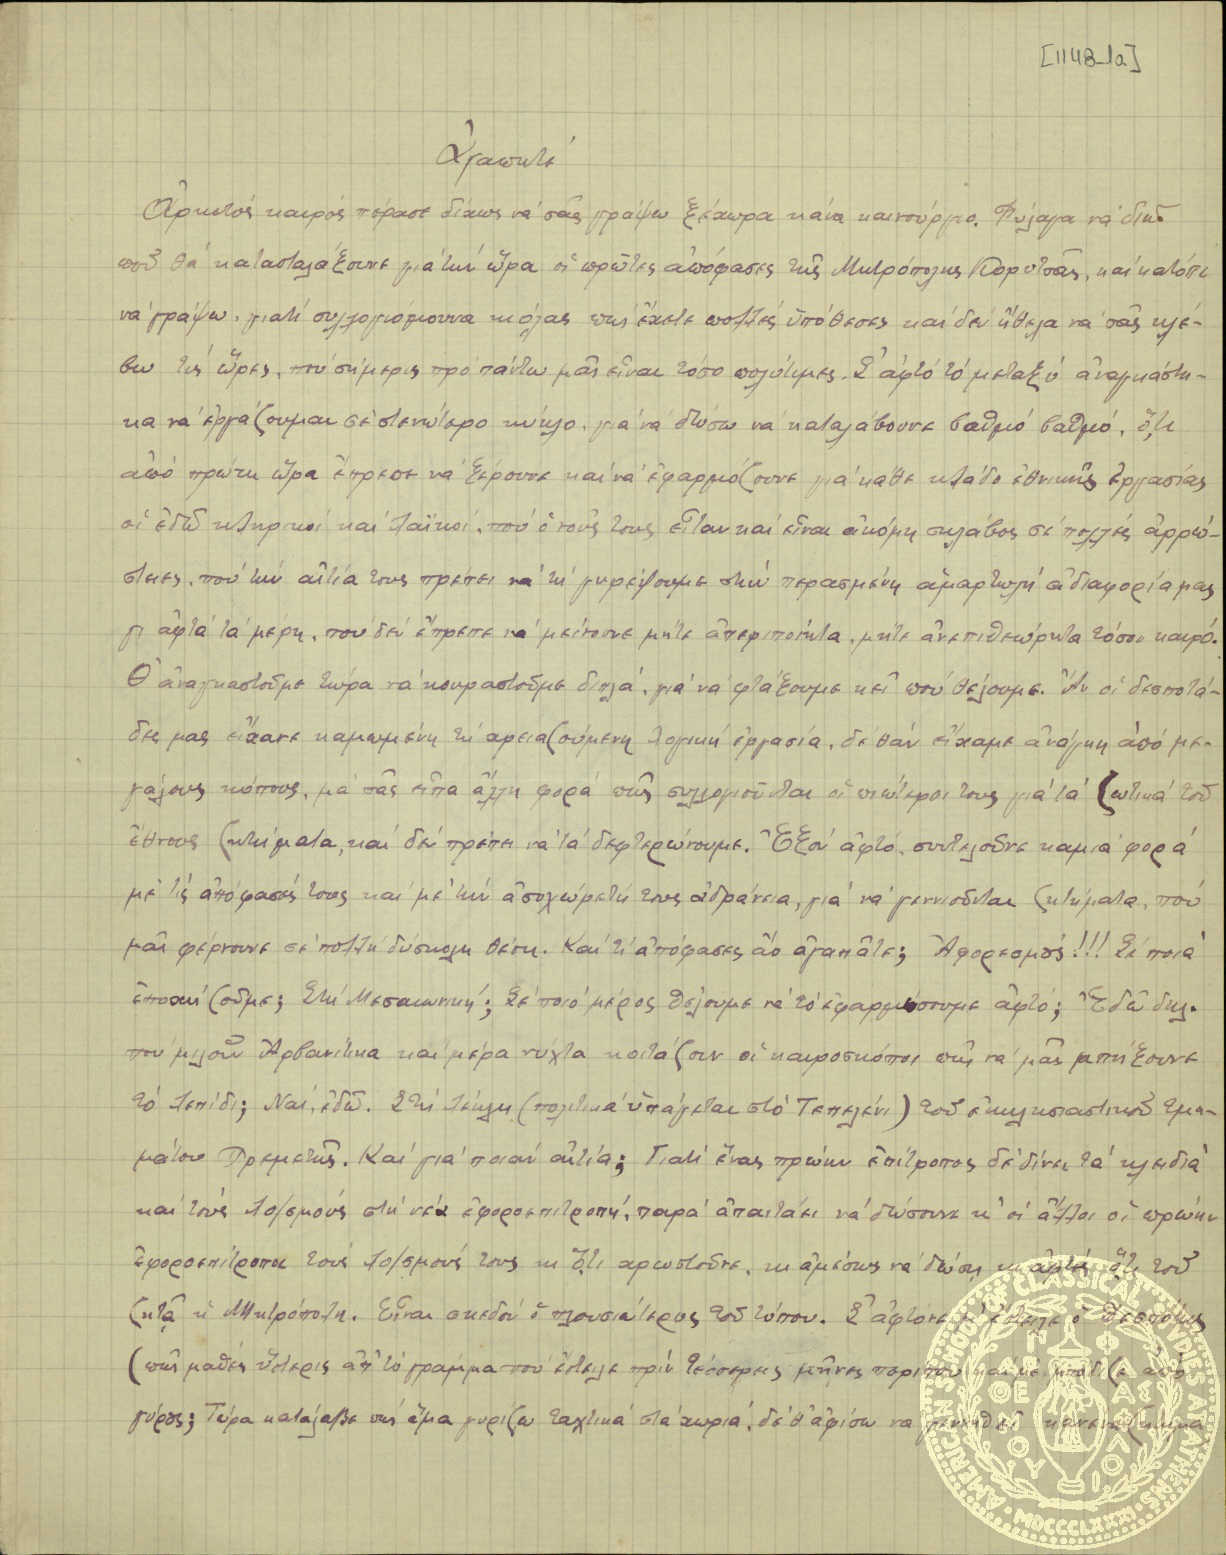 [1148-1a]
Ἀγαπητέ
Ἀρκετός καιρός πέρασε δίχως νά σᾶς γράψω ξέχωρα κάνα καινούργιο. Φύλαγα νά διῶ
ποῦ θά καταστα­λάξουνε γιά τήν ὥρα οἱ πρῶτες ἀπόφασες τῆς Μητρόπολης Κορυτσᾶς, καί κατόπι
νά γράψω, γιατί συλλογιόμουνα κιόλας πώς ἔχετε πολλές ὑπόθεσες καί δέν ἤθελα νά σᾶς κλέ-
βω τίς ὧρες, πού σήμερις πρό πάντω μᾶς εἶναι τόσο πολύτιμες. Σ' ἀφτό τό μεταξύ ἀναγκάστη-
κα νά ἐργάζουμαι σέ στενώτερο κύκλο, γιά νά δώσω νά καταλάβουνε βαθμό βαθμό, ὅ,τι
ἀπό πρώτη ὥρα ἔπρεπε νά ξέρουνε καί νά ἐφαρμόζουνε γιά κάθε κλάδο ἐθνικῆς ἐργασίας
οἱ ἐδῶ κληρικοί καί λαϊκοί, πού ὁ νοῦς τους εἶταν καί εἶναι ἀκόμη σκλάβος σέ πολλές ἀρρώ-
στειες, πού τήν αἰτία τους πρέπει νά τή γυρέψουμε στήν περασμένη ἁμαρτωλή ἀδιαφορία μας
γι ἀφτά τά μέρη, πού δέν ἔπρεπε νά μείνουνε μήτε ἀπεριποίητα, μήτε ἀνεπιθεώρητα τόσον καιρό.
Θ' ἀναγκαστοῦμε τώρα νά κουραστοῦμε διπλά, γιά νά φτάξουμε κεῖ πού θέλουμε. Ἄν οἱ δεσποτά-
δες μας εἴχανε καμωμένη τή χρειαζούμενη λογική ἐργασία, δέ θάν εἴχαμε ἀνάγκη ἀπό με-
γάλους κόπους, μά σᾶς εἶπα ἄλλη φορά πῶς συλλογιοῦνται οἱ πιώτεροι τους γιά τά ζωτικά τοῦ
ἔθνους ζητήματα, καί δέν πρέπει νά τά δεφτερώνουμε. Ἐξόν ἀφτό, συντελοῦνε καμιά φορά
μέ τίς ἀπόφασές τους καί μέ τήν ἀσυχώρετή τους ἀδράνεια, γιά νά γεννιοῦνται ζητήματα, πού
μᾶς φέρνουνε σέ πολλή δύσκολη θέση. Καί τί ἀπόφασες ἄν ἀγαπᾶτε; Ἀφορεσμός!!! Σέ ποιά
ἐποχή ζοῦμε; Στή Μεσαιωνική; Σέ ποιό μέρος θέλουμε νά τό ἐφαρμόσουμε ἀφτό; Ἐδῶ δηλ.
πού μιλοῦν Ἀρβανίτικα καί μέρα νύχτα κοιτάζουν οἱ καιροσκόποι πῶς νά μᾶς μπήξουνε
τό λεπίδι; Ναί, ἐδῶ. Στή Λέκλη (πολιτικά ὑπάγεται στό Τεπελένι) τοῦ ἐκκλησιαστικοῦ τμή-
ματου Πρεμετῆς. Καί γιά ποιάν αἰτία; Γιατί ἕνας πρώην ἐπίτροπος δέ δίνει τά κλειδιά
καί τούς λο/σμούς στή νέα ἐφοροεπιτροπή, παρά ἀπαιτάει νά δώσουνε κ' οἱ ἄλλοι οἱ πρώην
ἐφοροεπίτροποι τούς λο/σμούς τους κι ὅ,τι χρωστοῦνε, κι ἀμέσως νά δώση κι ἀφτός ὅ,τι τοῦ
ζητᾷ ἡ Μητρόπολη. Εἶναι σκεδόν ὁ πλουσιώτερος τοῦ τόπου. Σ' ἀφτόνε μ' ἔστειλε ὁ Δεσπότης
(πῶς μαθές ὕστερις ἀπ' τό γράμμα πού ἔστειλε πρίν τέσσερεις μῆνες περίπου καί μέ μπόδιζε ἀπό
γύρος; Τώρα κατάλαβε πώς ἅμα γυρίζω ταχτικά στά χωριά, δέ θ' ἀφίσω να γεννηθεῖ κανένα ζήτημα
AMERICAN SCHOOL OF CLASSICAL STUDIES AT ATHENS
MDCCCLXXXI